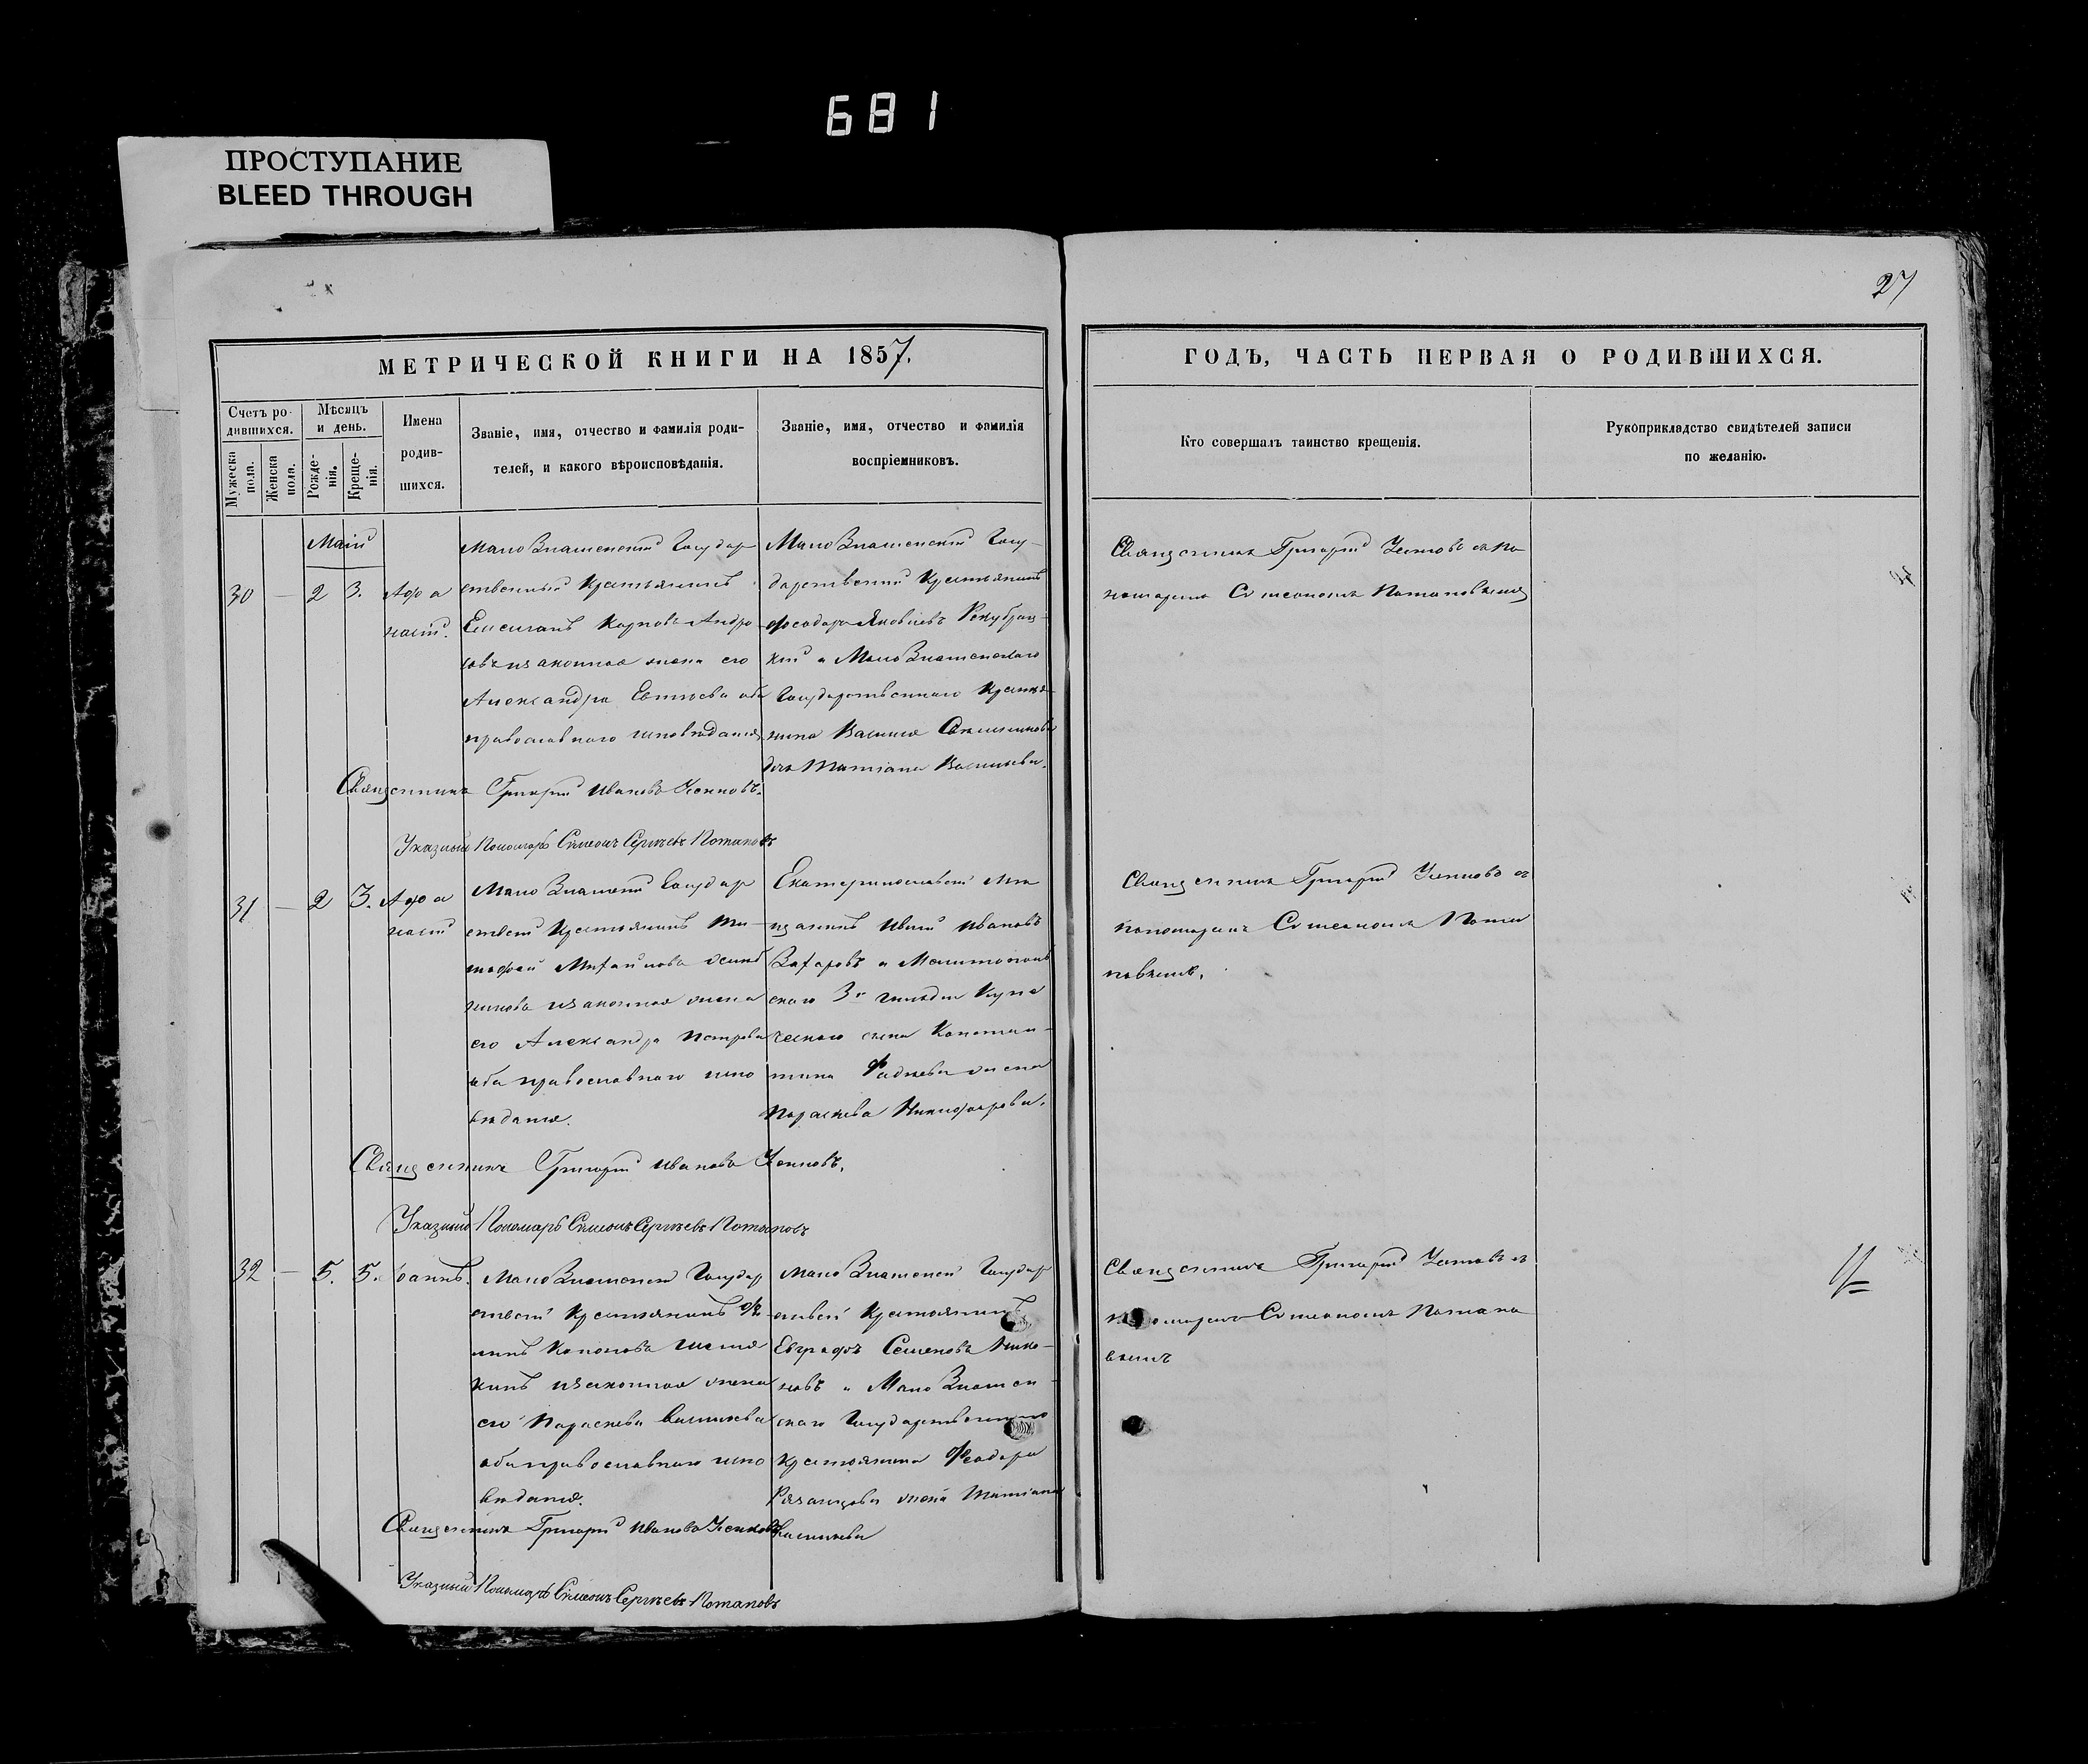 681
ПРОСТУПАНИЕ
BLEED THROUGH
27
МЕТРИЧЕСКОЙ КНИГИ НА 1857.
Счетъ ро-
дившихся.
Мужеска
пола.
Женска
пола.
Мѣсяцъ
и день.
Рожде-
нія.
Креще-
нія.
Имена
родив-
шихся.
Званіе, имя, отчество и фамилія роди-
телей, и какого вѣроисповѣданія.
Званіе, имя, отчество и фамилія
воспріемниковъ.
ГОДЪ, ЧАСТЬ ПЕРВАЯ О РОДИВШИХСЯ.
Кто совершалъ таинство крещенія.
Рукоприкладство свидѣтелей записи
по желанію.
Маій
30 — 2 3.
Афа
насій.
МалоЗнаменскій Государ
ственный Крестьянинъ
Емелианъ Карповъ
законная жена его
Александра
православнаго исповѣданія
МалоЗнаменскій Госу-
дарственный Крестьянинъ
Феодоръ Яковлевъ
и МалоЗнаменскаго
Государственнаго Крестья-
нина Василія
дочь Татіана Васильева.
Священникъ Григорій
пономаремъ Симеономъ Потаповымъ
Священникъ Григорій Ивановъ
Указный Пономарь Симеонъ Сергѣевъ Потаповъ
31 — 2 3.
Афа
насій
МалоЗнаменскій Государ
ствен Крестьянинъ Ти-
мофей Михайловъ
законная жена
его Александра Петрова
оба православнаго испо
вѣданія.
Екатеринославскій мѣ
щанинъ Ивановъ
Захаровъ и Мелитополь
скаго 3й гильдіи Купе
ческаго сына Констан-
тина жена
Параскева Никифорова.
Священникъ Григорій съ
пономаремъ Симеономъ Пота
повымъ.
Священникъ Григорій Ивановъ
Указный Пономарь Симеонъ Сергѣевъ Потаповъ
32 — 5. 5.
Іоаннъ.
МалоЗнаменскій Государ
ствен Крестьянинъ
законная жена
его Параскева Васильева
оба православнаго испо
вѣданія.
МалоЗнаменскій Государ
ствен Крестьянинъ
Евграфъ Семеновъ
и МалоЗнамен-
скаго Государственнаго
Крестьянина Феодора
Рязанцова жена Татіана
Васильева
Священникъ Григорій съ
Симеономъ Потапо
вымъ
Священникъ Григорій Ивановъ
Указный Пономарь Симеонъ Сергѣевъ Потаповъ